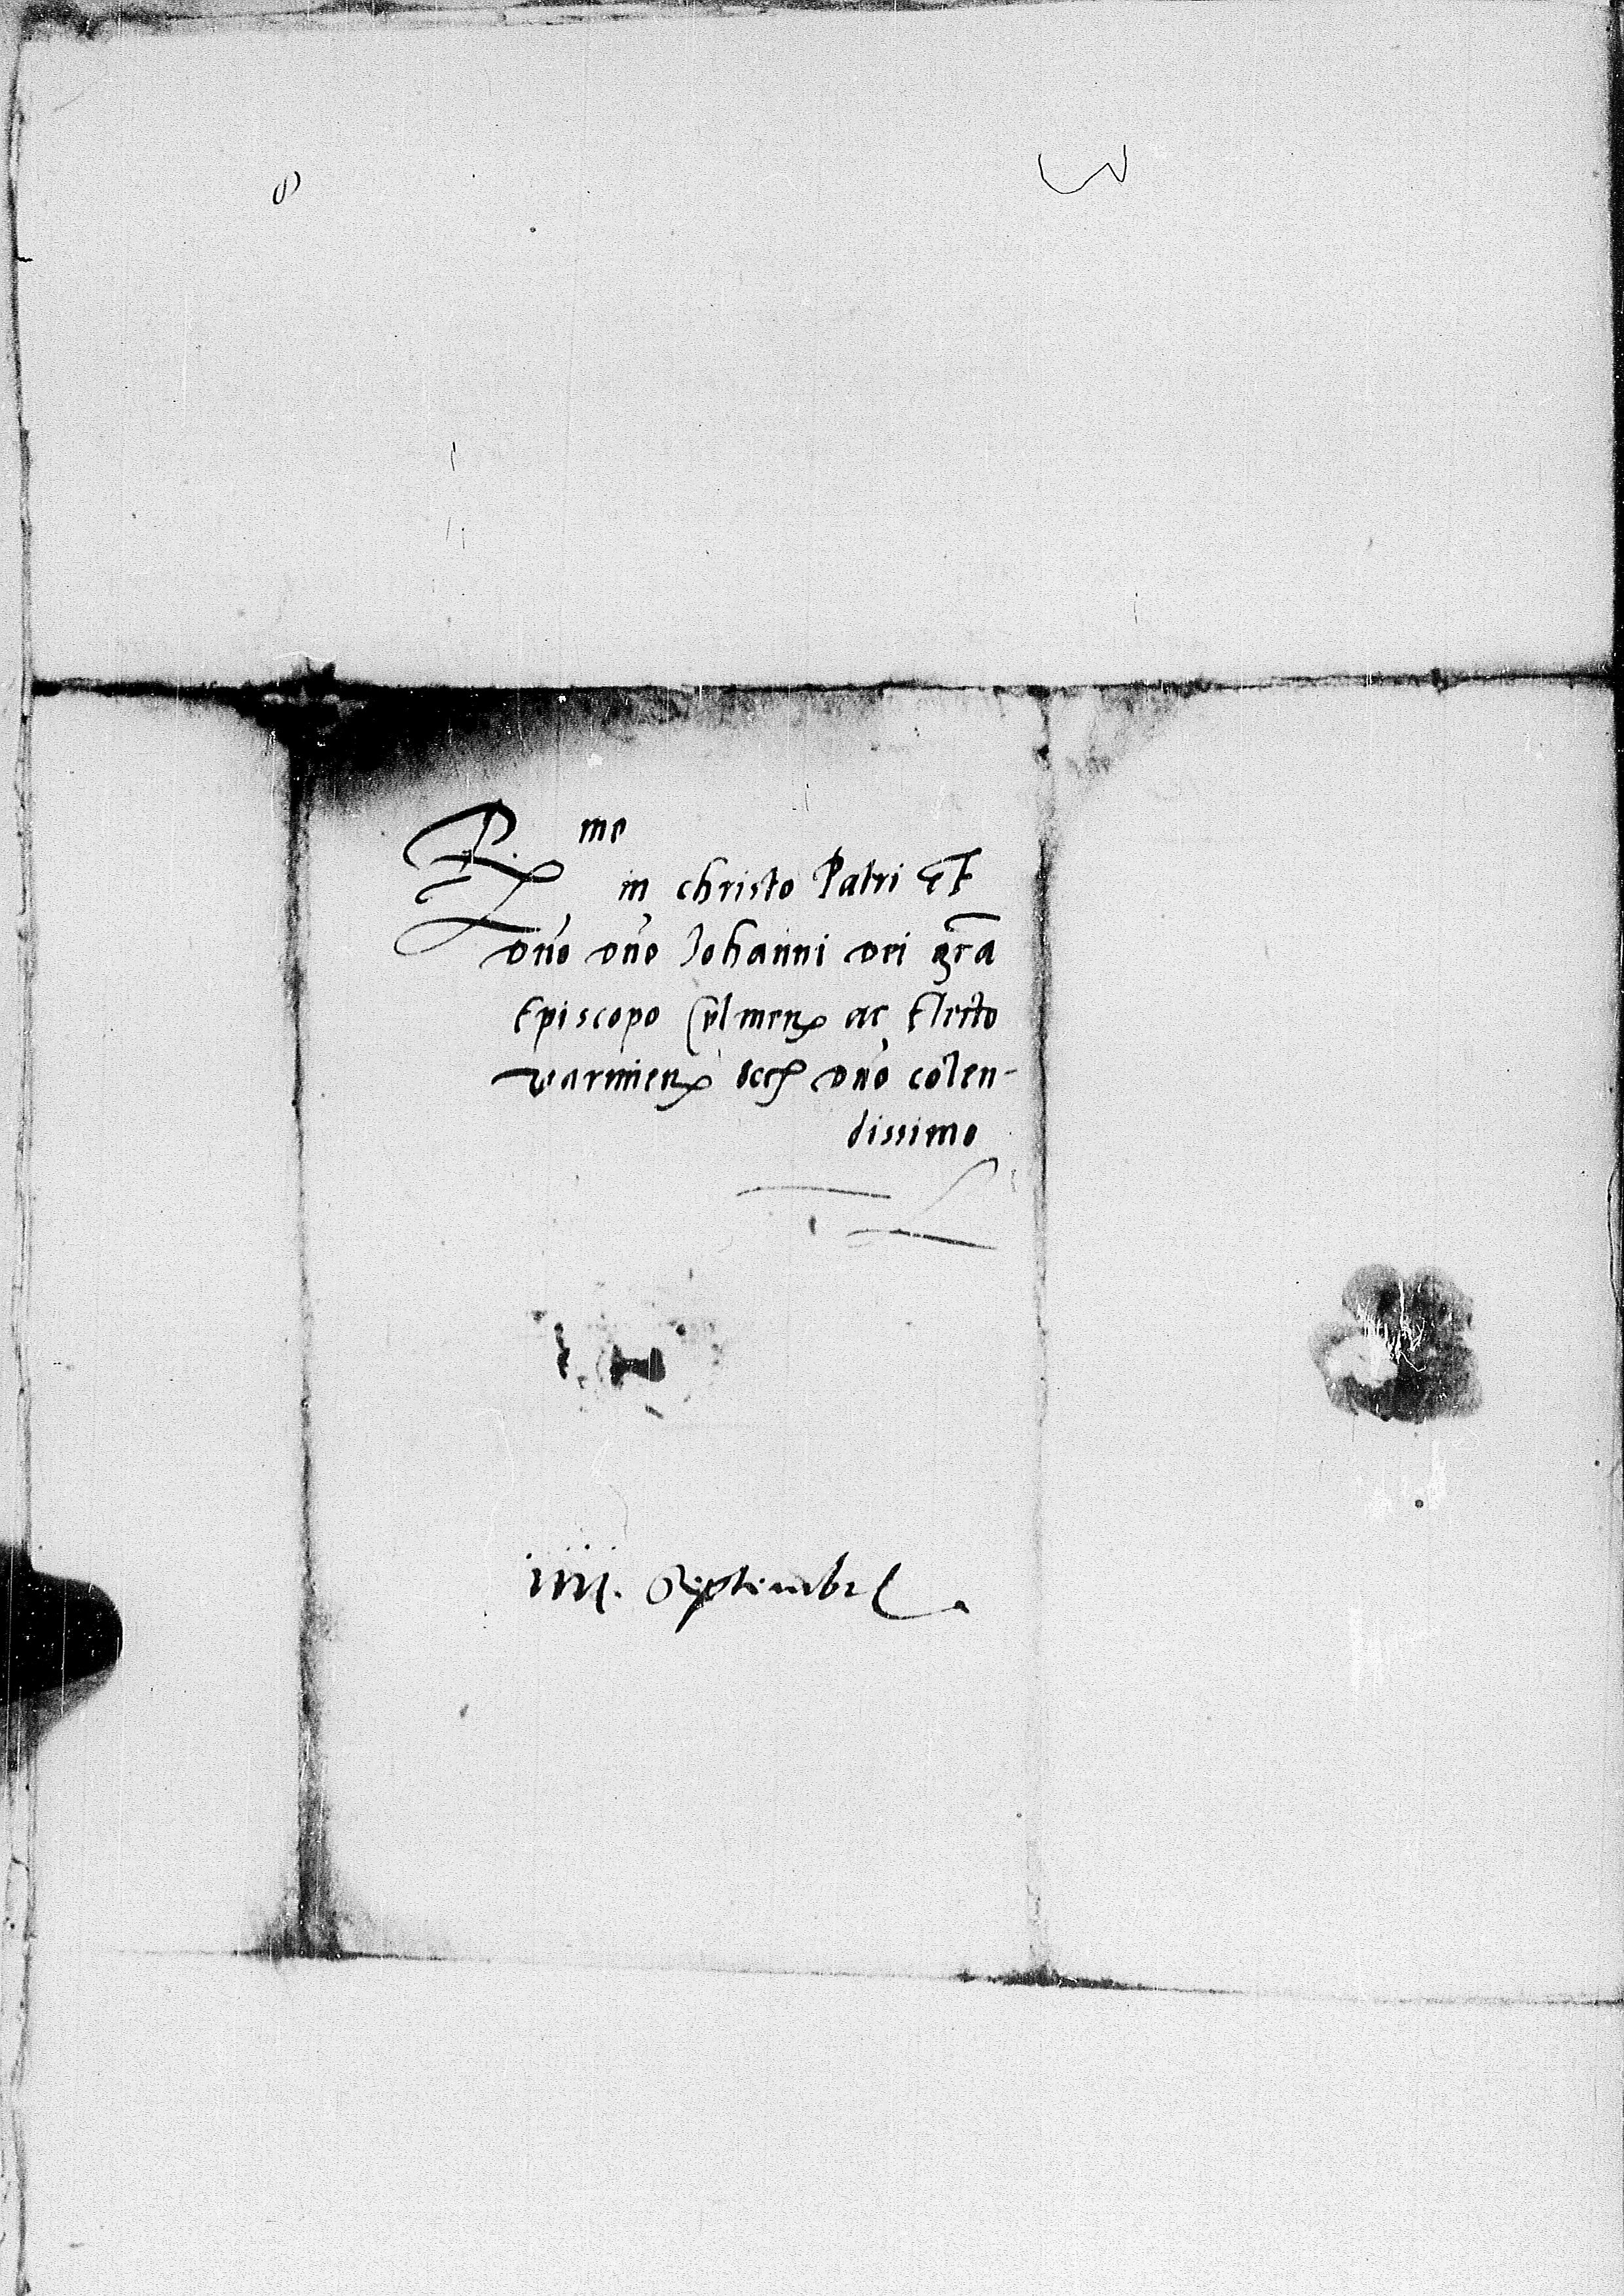 R.me
in christo Patri et
dno dno Johanni dei gra
Episcopo Culmen ac Electo
varmien ecc dno colen-
dissimo
iiii. Septembr